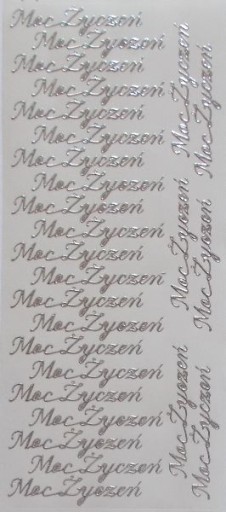 Moc Życzeń
Moc Życzeń
Moc Życzeń
Moc Życzeń
Moc Życzeń
Moc Życzeń
Moc Życzeń
Moc Życzeń
Moc Życzeń
Moc Życzeń
Moc Życzeń
Moc Życzeń
Moc Życzeń
Moc Życzeń
Moc Życzeń
Moc Życzeń
Moc Życzeń
Moc Życzeń
Moc Życzeń
Moc Życzeń
Moc Życzeń
Moc Życzeń
Moc Życzeń
Moc Życzeń
Moc Życzeń
Moc Życzeń
Moc Życzeń